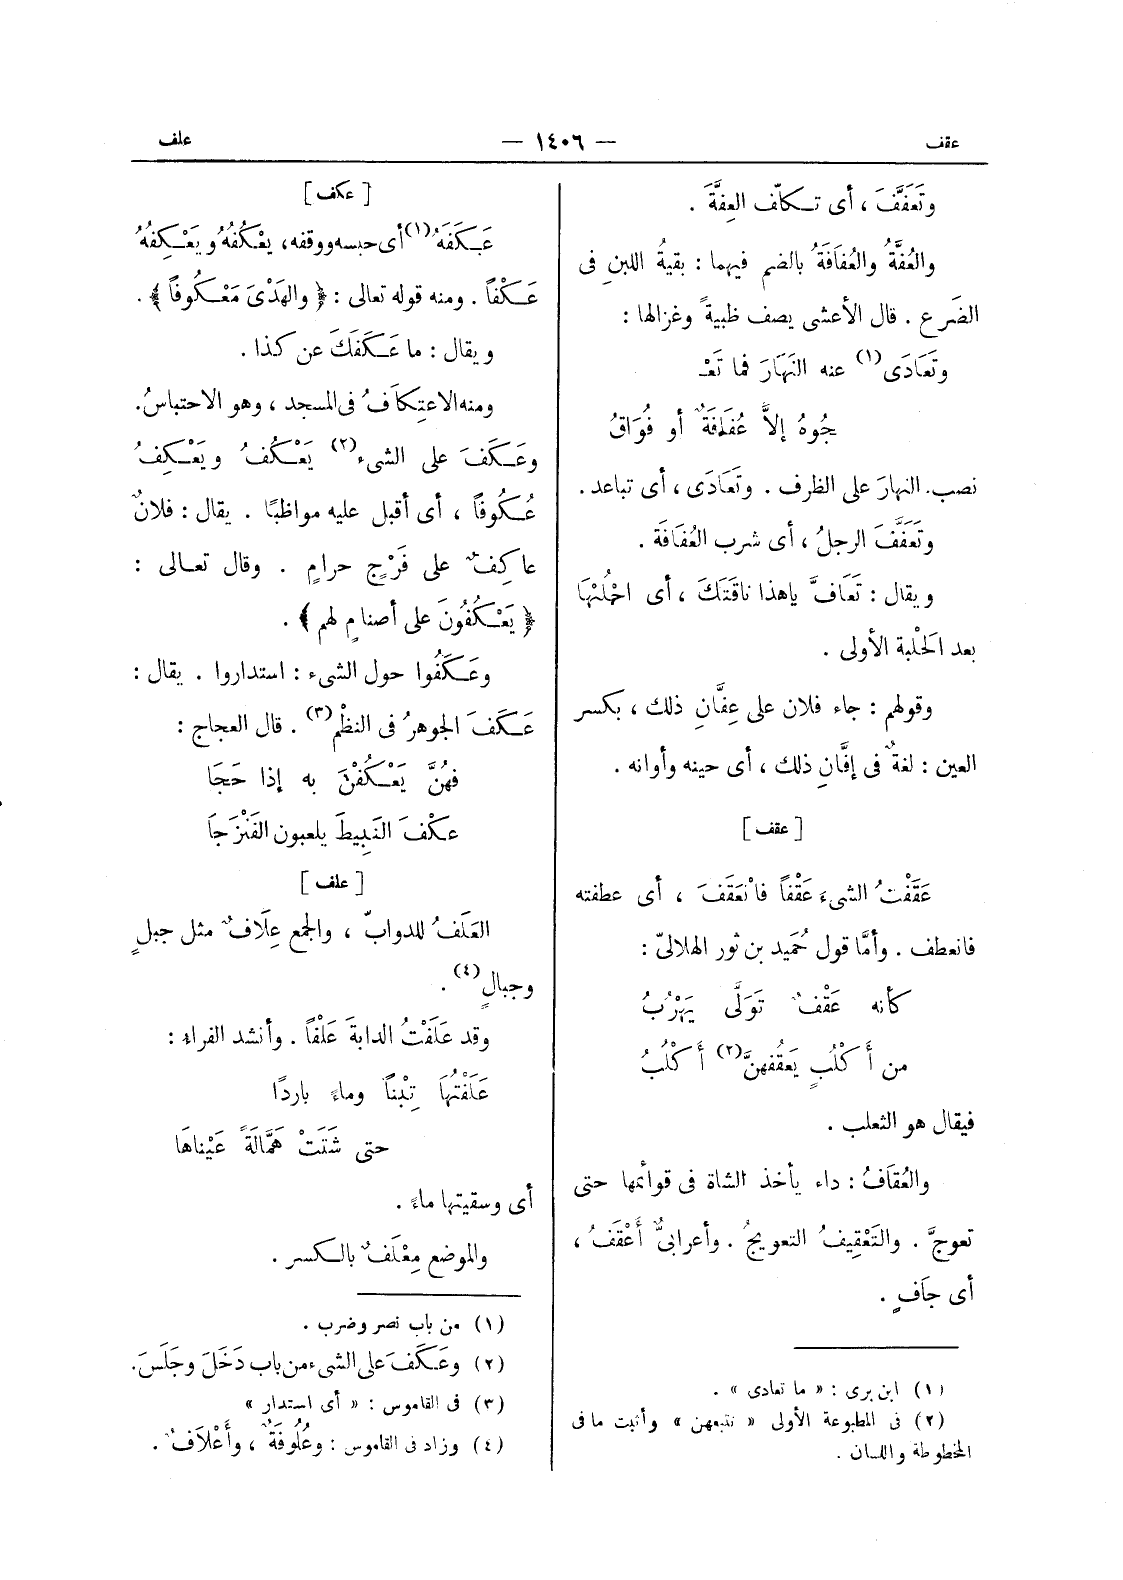 عقف — ١٤٠٦ — علف
وتَعَفَّفَ ، أى تكلّف العِفَّةَ .
والعُفَّةُ والعُفَافَةُ بالضم فيهما : بقيةُ اللبنِ فى
الضَرع . قال الأعشى يصف ظبيةً وغزالها :
وتَعَادَى(١) عنه النَهَارَ فما تَعْـ
جُوهُ إلاَّ عُفَافَةٌ أو فُوَاقُ
نصب النهارَ على الظرف . وتَعَادَى ، أى تباعد .
وتَعَفَّفَ الرجلُ ، أى شرب العُفَافَةَ .
ويقال : تَعَافَّ ياهذا ناقَتَكَ ، أى احْلُبْهَا
بعد الحَلْبة الأولى .
وقولهم : جاء فلان على عِفَّانِ ذلك ، بكسر
العين : لغةٌ فى إفَّانِ ذلك ، أى حينه وأوانه .
[ عقف ]
عَقَفْتُ الشىءَ عَقْفاً فانْعَقَفَ ، أى عطفته
فانعطف . وأمَّا قول حُمَيد بن ثور الهلالىّ :
كأنه عَقْفٌ تَوَلَّى يَهْرُبُ
من أَكْلُبٍ يَعقُفهنَّ(٢) أَكْلُبُ
فيقال هو الثعلب .
والعُقَافُ : داء يأخذ الشاة فى قوائمها حتى
تعوجَّ . والتَعْقِيفُ التعويجُ . وأعرابىٌّ أَعْقَفُ ،
أى جَافٍ .
(١) ابن برى : « ما تعادى » .
(٢) فى المطبوعة الأولى « تتبعهن » وأثبت ما فى
المخطوطة واللسان .
[ عكف ]
عَكَفَهُ(١) أى حبسه ووقفه، يعْكُفُهُ ويَعْكِفُهُ
عَكْفاً . ومنه قوله تعالى : ﴿ والهَدْىَ مَعْكُوفاً ﴾ .
ويقال : ما عَكَفَكَ عن كذا .
ومنه الاعتِكَافُ فى المسجد ، وهو الاحتباسُ.
وعَكَفَ على الشىء(٢) يَعْكُفُ ويَعْكِفُ
عُكُوفاً ، أى أقبل عليه مواظبًا . يقال : فلانٌ
عاكِفٌ على فَرْجٍ حرامٍ . وقال تعالى :
﴿ يَعْكُفُونَ على أصنامٍ لهم ﴾ .
وعَكَفُوا حول الشىء : استداروا . يقال :
عَكَفَ الجوهرُ فى النظْم(٣) . قال العجاج :
فهُنَّ يَعْكُفْنَ به إذا حَجَا
عكْفَ النَبِيطَ يلعبون الفَنْزَجَا
[ علف ]
العَلَفُ للدوابّ ، والجمع عِلَافٌ مثل جبلٍ
وجبالٍ(٤) .
وقد عَلَفْتُ الدابةَ عَلْفاً . وأنشد الفراء :
عَلَفْتُهَا تِبْناً وماءً باردًا
حتى شَتَتْ هَمَّالَةً عَيْناهَا
أى وسقيتها ماءً .
والموضع مِعْلَفٌ بالكسر .
(١) من باب نصر وضرب .
(٢) وعَكَفَ على الشىء من باب دَخَلَ وجَلَسَ.
(٣) فى القاموس : « أى استدار »
(٤) وزاد فى القاموس : وعُلُوفَةٌ ، وأَعْلَافٌ .